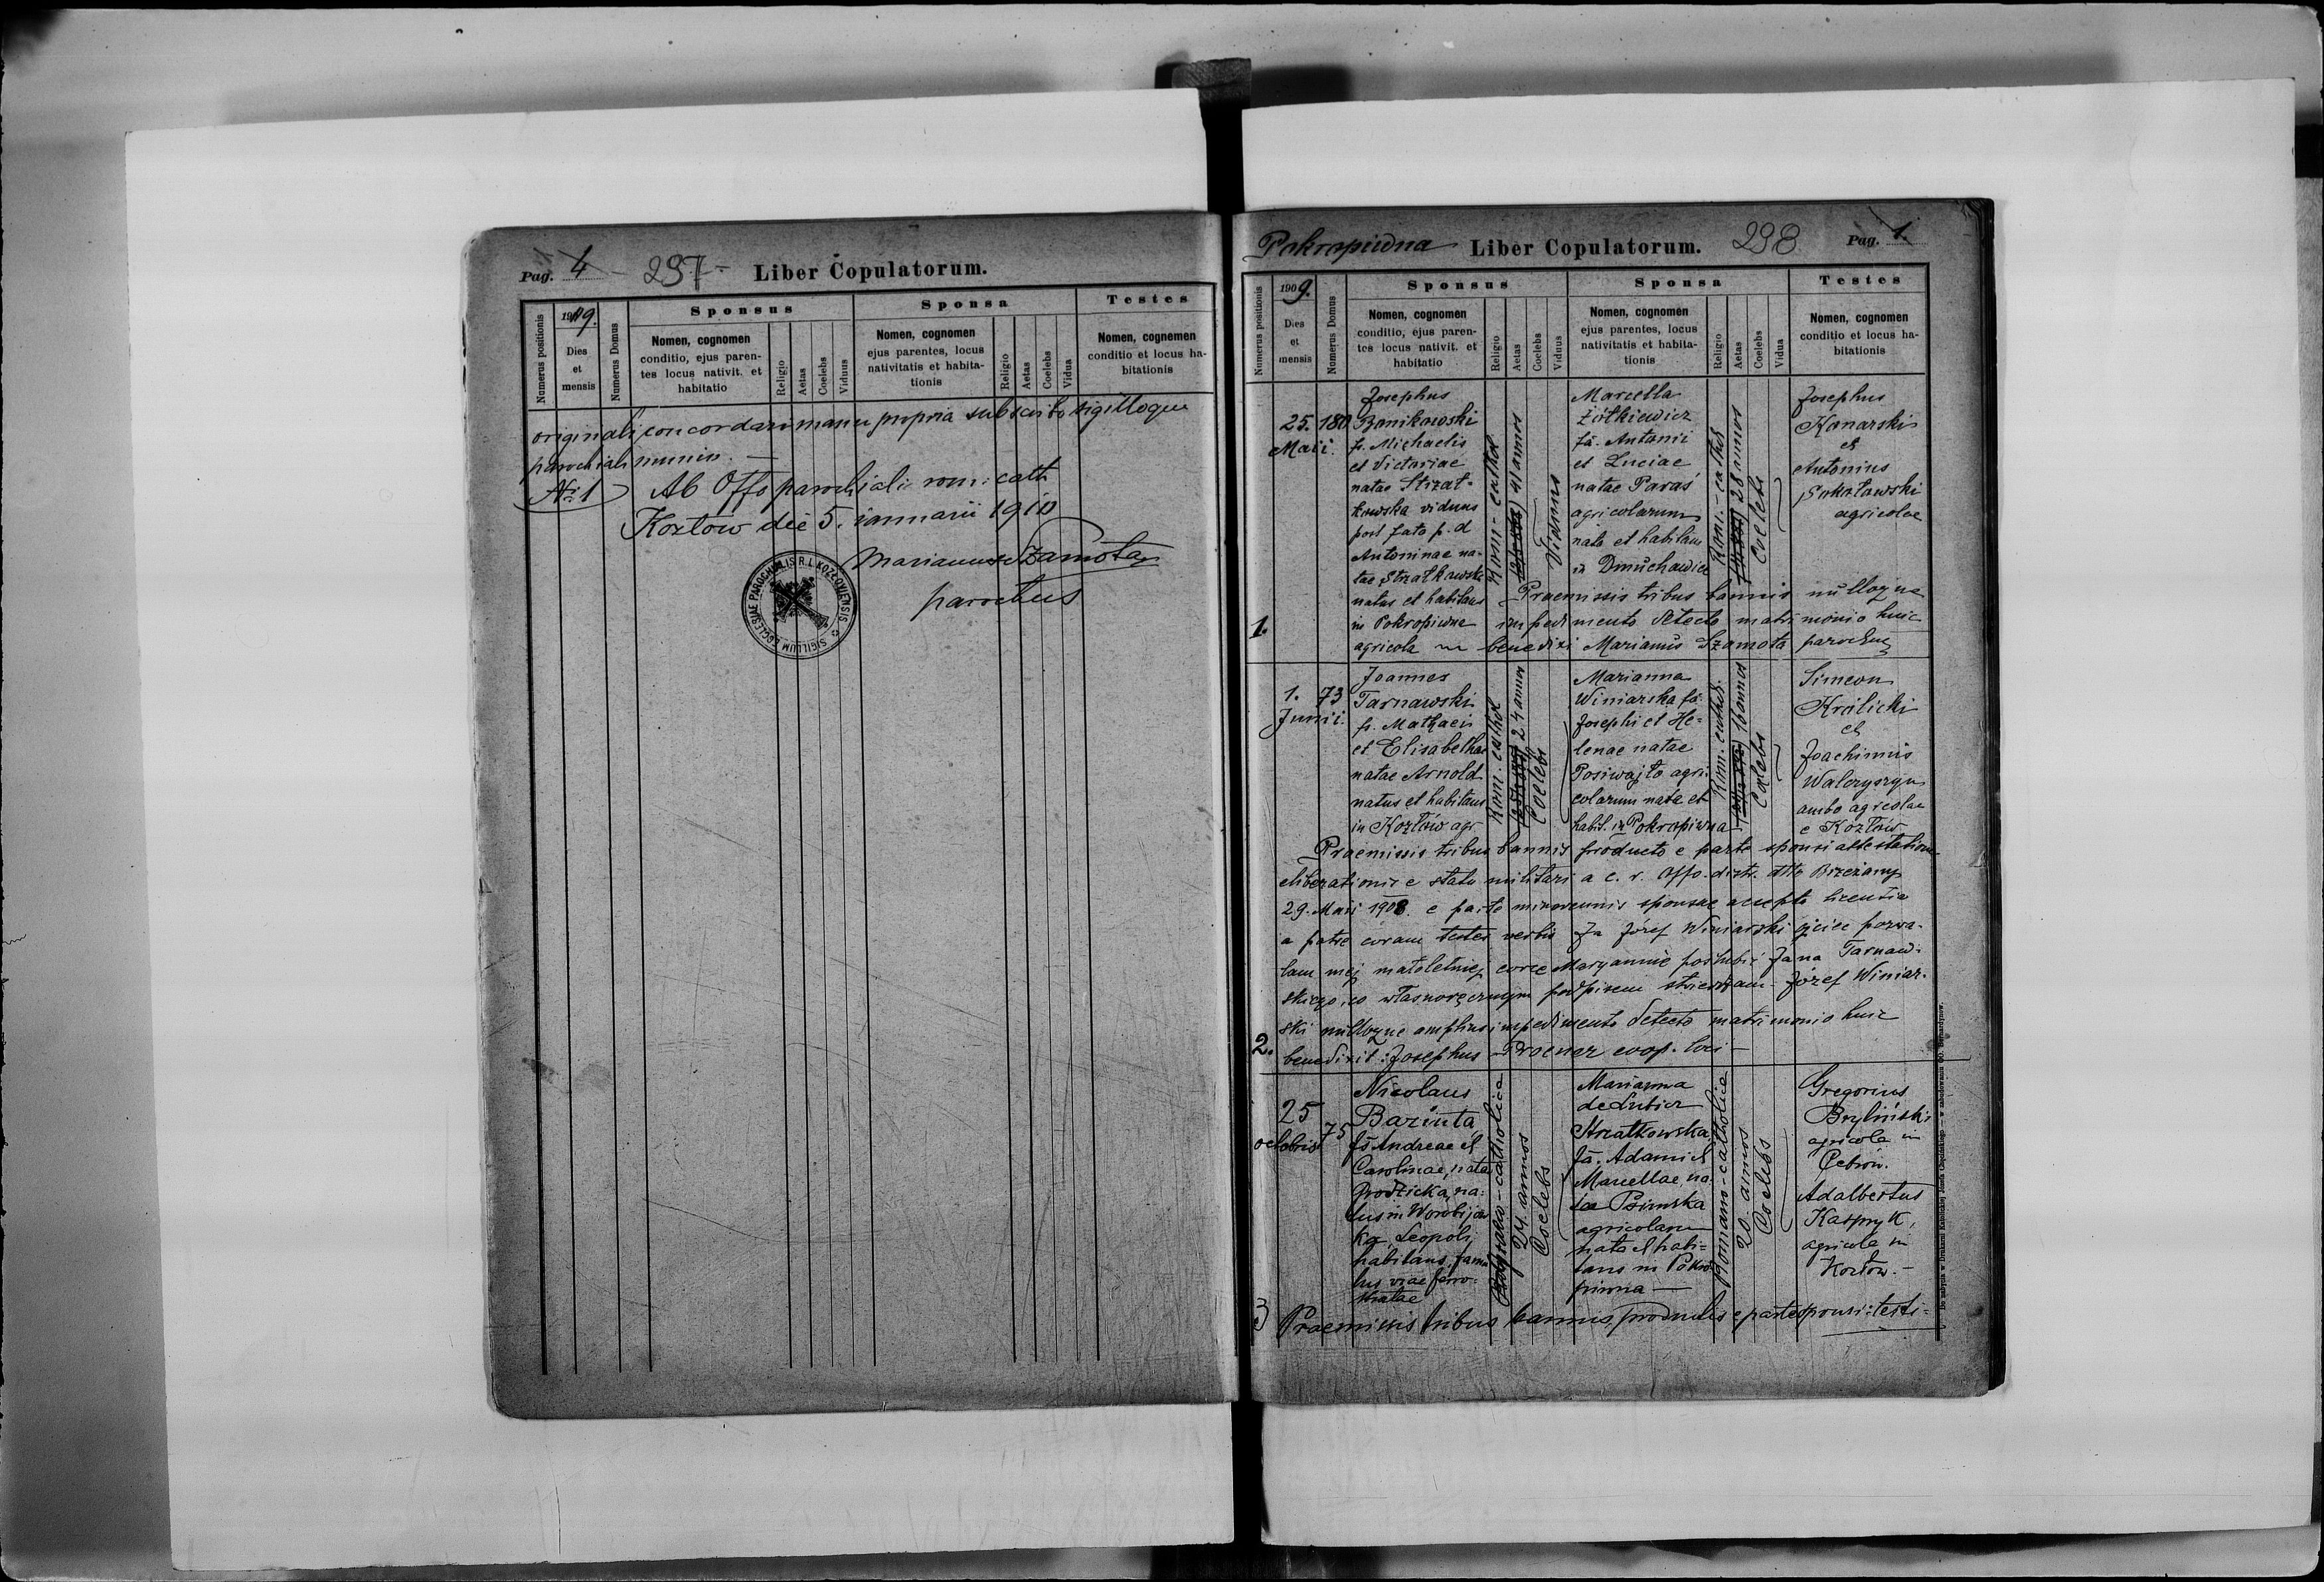 Pag. 4 - 297 - Liber Copulatorum.
Numerus positionis
1909.
Dies
et
mensis
Numerus Domus
Sponsus
Nomen, cognomen
conditio, ejus paren-
tes locus nativit. et
habitatio
Religio
Aetas
Coelebs
Viduus
Sponsa
Nomen, cognomen
ejus parentes, locus
nativitatis et habita-
tionis
Religio
Aetas
Coelebs
Vidua
Testes
Nomen, cognemen
conditio et locus ha-
bitationis
originali concordari manu propria subscribo sigilloque
parochiali munio. —
№ 1 Ab Offo parochiali rom: cath
Kozłow die 5. ianuarii 1910
Marianus Szamota
parochus
SIGILLUM ECCLESIAE PAROCHIALIS R. L. KOZŁOVIENSIS
Pokropiwna Liber Copulatorum. 298 Pag. 1.
Numerus positionis
1909.
Dies
et
mensis
Numerus Domus
Sponsus
Nomen, cognomen
conditio, ejus paren-
tes locus nativit. et
habitatio
Religio
Aetas
Coelebs
Viduus
Sponsa
Nomen, cognomen
ejus parentes, locus
nativitatis et habita-
tionis
Religio
Aetas
Coelebs
Vidua
Testes
Nomen, cognomen
conditio et locus ha-
bitationis
1.
25.
Maii.
180
Josephus
Bonikowski
fs. Michaelis
et Victoriae
natae Strzał-
kowska viduus
post fata p. d
Antoninae na-
tae Strzałkowska
natus et habitans
in Pokropiwna
agricola
Rom-cathol
41 annos
Viduus
Marcella
Żółkiewicz
fa. Antonii
et Luciae
natae Paraś
agricolarum
nata et habitans
in Dmuchawiec
Rom.-cathol
28 annos
Coelebs
Josephus
Konarski
et
Antonius
Sokołowski
agricolae
Praemissis tribus bannis nulloque
impedimento detecto matrimonio huic
benedixi Marianus Szamota parochus
2.
1.
Junii.
73
Joannes
Tarnawski
fs. Mathaei
et Elisabethae
natae Arnold
natus et habitans
in Kozłów agr.
Rom. cathol
24 annos
Coelebs
Marianna
Winiarska fa.
Josephi et He-
lenae natae
Posiwajło agri-
colarum nata et
habit. in Pokropiwna
Rom. cathol.
16 annos
Coelebs
Simeon
Królicki
et
Joachimus
Walczyszyn
ambo agricolae
e Kozłów
Praemissis tribus bannis producto e parte sponsi attestatione
eliberationis e statu militari a c. r. Offo. distr. dtto Brzeżany
29. Maii 1908. e parte minorennis sponsae accepta licentia
a patre coram testes verbis Ja Józef Winiarski ojciec pozwa-
lam mej małoletniej corce Maryannie poślubić Jana Tarnaw-
skiego, co własnoręcznym podpisem stwierdzam - Józef Winiar-
ski nulloque amplius impedimento detecto matrimonio huic
benedixit: Josephus Procner coop. loci —
3
25
octobris
75
Nicolaus
Baziuta
fs Andreae et
Carolinae, nata
Grodzicka, na-
tus in Worobijów
ka, Leopoli
habitans, famu
lus viae ferro-
stratae
24 annos
Coelebs
Marianna
de Lubicz
Strzałkowska
fa. Adami et
Marcellae, na
tae Psiurska
agricolarum
nata et habi-
tans in Pokro
piwna —
Romano-catholica
20 annos
Coelebs
Gregorius
Bryliński
agricola in
Cebrów.
Adalbertus
Kaspryk,
agricola in
Kozłów. —
Praemissis tribus bannis, productis e parte sponsi: testi-